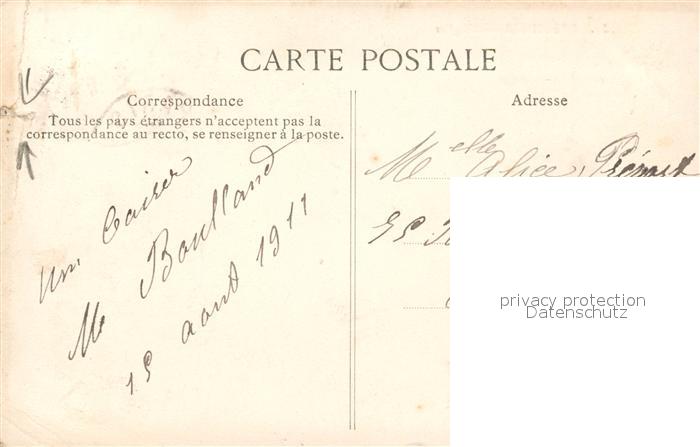 CARTE POSTALE
Correspondance
Tous les pays étrangers n'acceptent pas la
correspondance au recto, se renseigner à la poste.
Un baiser
M Boulland
15 aout 1911
Adresse
Melle Alice
privacy protection
Datenschutz